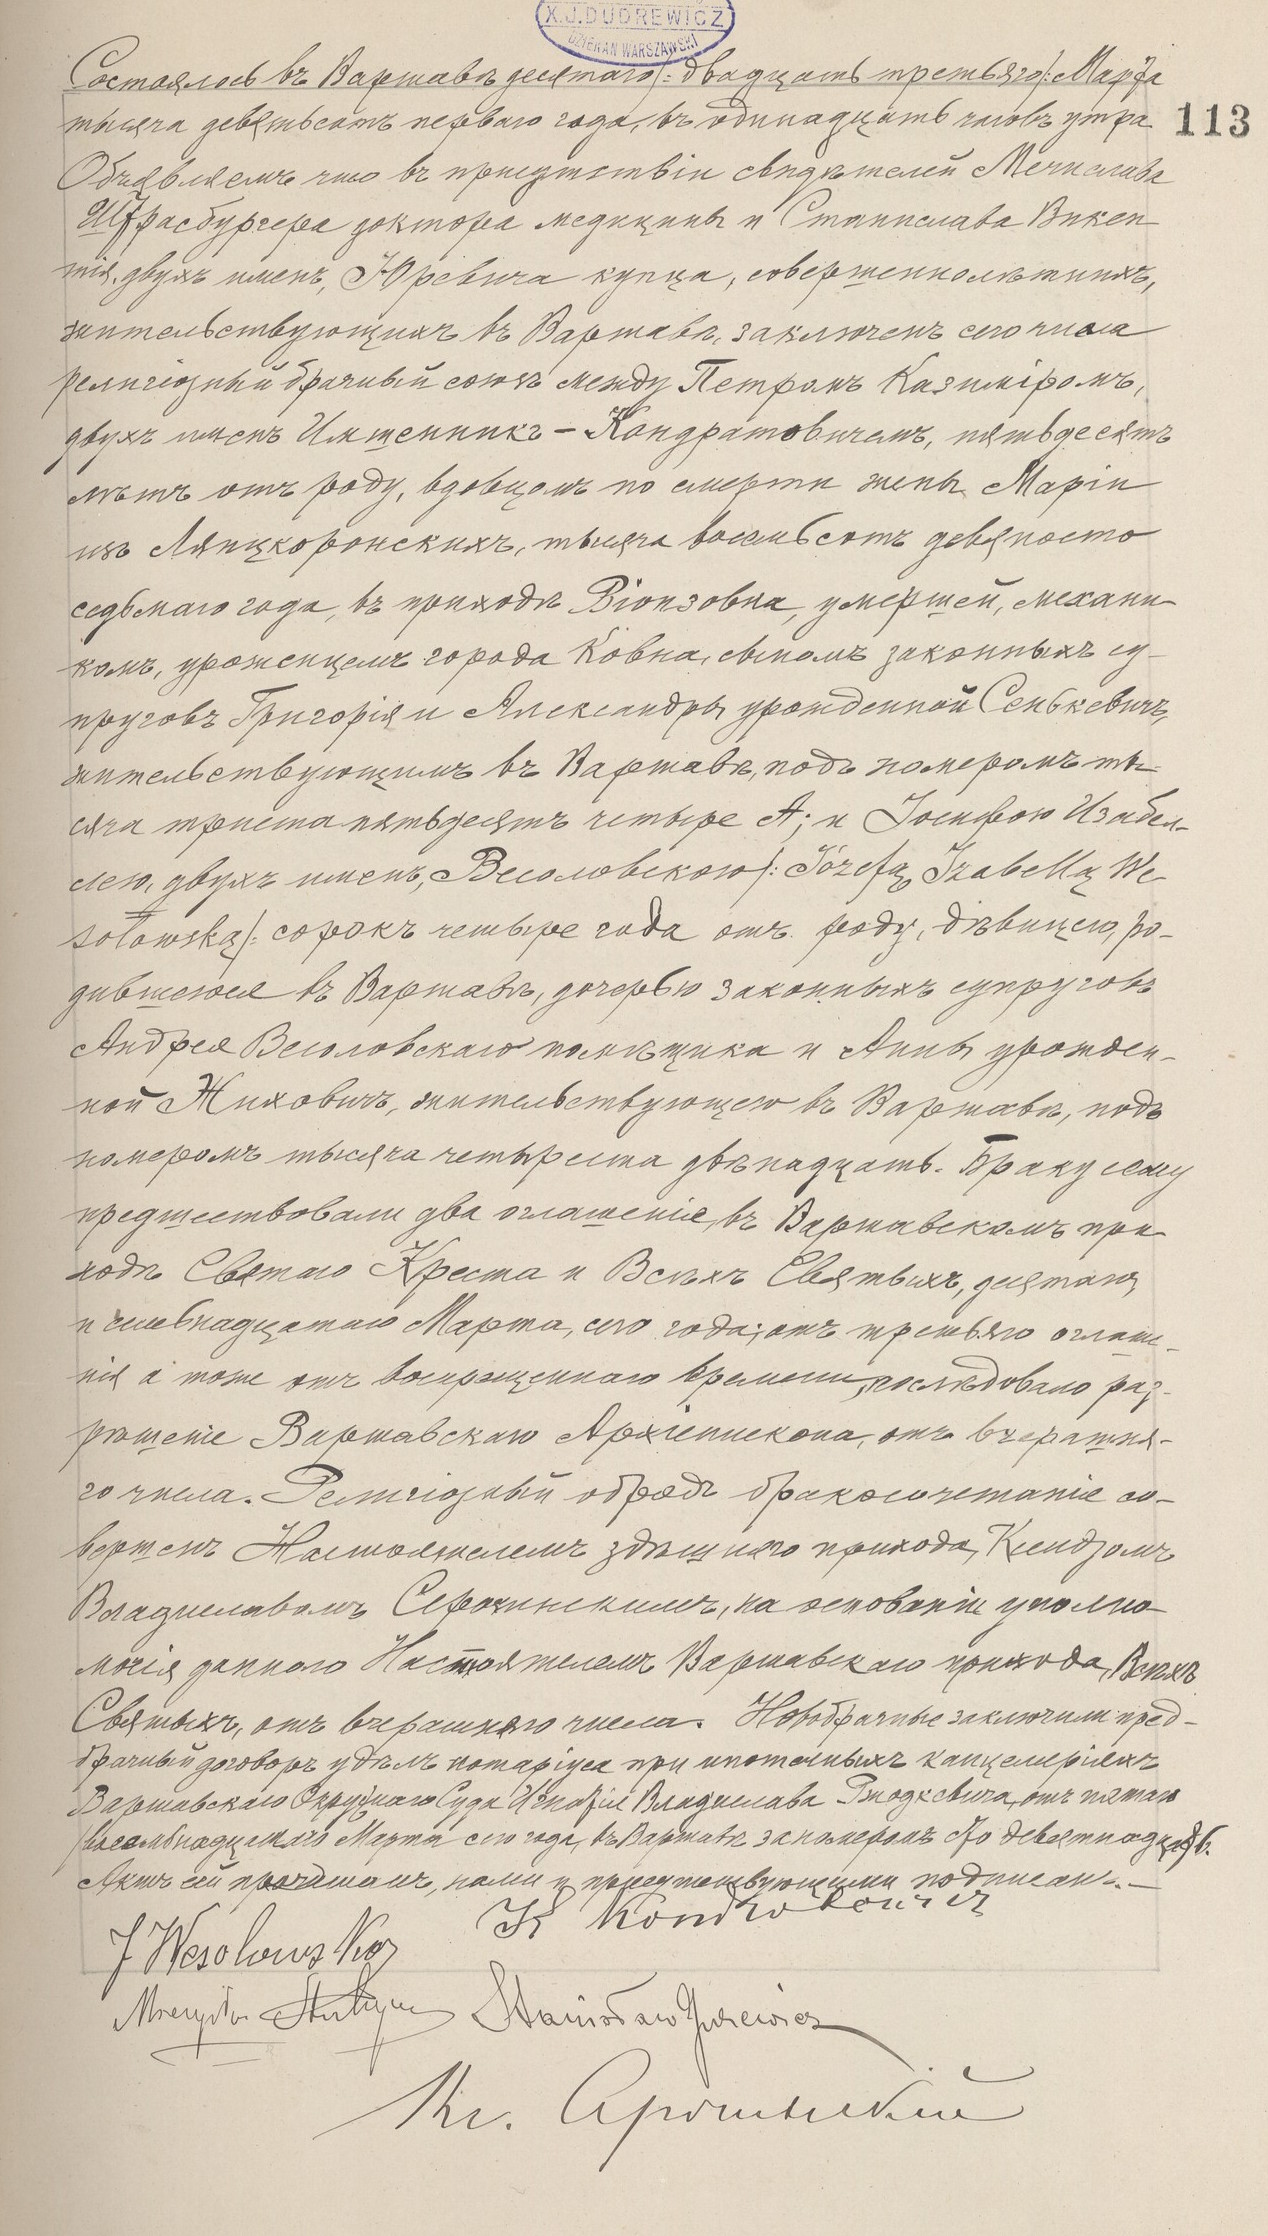 X.J.DUDREWICZ
DZIEKAN WARSZAWSKI
113
Состоялось въ Варшавѣ десятаго /: двадцать третьяго :/ Марта
тысяча девятьсотъ перваго года, въ одинадцать часовъ утра
Объявляемъ что въ присутствіи свидѣтелей Мечислава
Штрасбургера доктора медицины и Станислава Викен
тія, двухъ именъ, Юревича купца, совершеннолѣтнихъ,
жительствующихъ въ Варшавѣ, заключенъ сего числа
религіозный брачный союзъ между Петромъ Казиміромъ,
двухъ именъ Имшенникъ – Кондратовичемъ, пятьдесятъ
лѣтъ отъ роду, вдовцомъ по смерти жены Маріи
изъ Лянцкоронскихъ, тысяча восемьсотъ девяносто
седьмаго года, въ приходѣ Віонзовна, умершей, механи
комъ, уроженцемъ города Ковна, сыномъ законныхъ су–
пруговъ Григорія и Александры урожденной Сенькевичъ,
жительствующимъ въ Варшавѣ, подъ номеромъ ты–
сяча триста пятьдесятъ четыре А; и Іосифою Изабел–
лею, двухъ именъ, Весоловскою /: Józefą Izabellą We
sołowską /: сорокъ четыре года отъ роду, дѣвицею, ро–
дившеюся въ Варшавѣ, дочерью законныхъ супруговъ
Андрея Весоловскаго помѣщика и Анны урожден–
ной Жиховичъ, жительствующею въ Варшавѣ, подъ
номеромъ тысяча четыреста двѣнадцать. Браку сему
предшествовали два оглашенія, въ Варшавскомъ при
ходѣ Святаго Креста и Всѣхъ Святыхъ, десятаго
и семьнадцатаго Марта, сего года; отъ третьяго оглаше–
нія а тоже отъ воспрещеннаго времени, послѣдовало раз–
рѣшеніе Варшавскаго Архіепископа, отъ вчерашня–
го числа. Религіозный обрядъ бракосочетаніе со–
вершенъ Настоятелемъ здѣшняго прихода, Ксендзомъ
Владиславомъ Серочинскимъ, на основаніи уполно
мочія даннаго Настоятелемъ Варшавскаго прихода, Всѣхъ
Святыхъ, отъ вчерашняго числа. Новобрачные заключили пред–
брачный договоръ у дѣлъ нотаріуса при ипотечныхъ канцеляріяхъ
Варшавскаго Окружнаго Суда Владислава отъ пятаго
/восемьнадцатаго Марта сего года, въ Варшавѣ за номеромъ девятнадцать.
Актъ сей прочитанъ, нами и присутствующими подписанъ. –
K Kondratowicz
J Wesołowska
Stanisław Jurewicz
Кс. Серочинскій